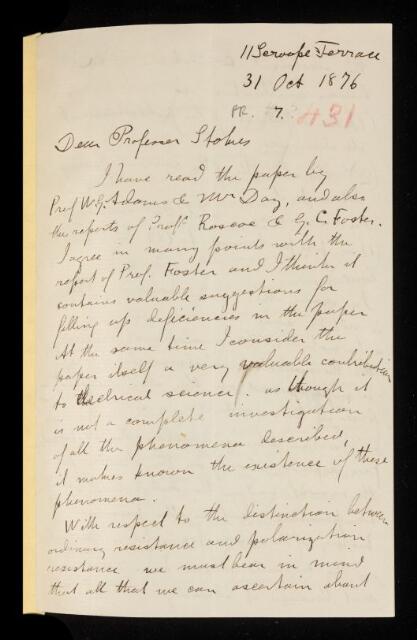 11 Scroope Terrace
31 Oct 1876
RR. 7. 431
Dear Professor Stokes
I have read the paper by
Prof W.G. Adams & Mr Day, and also
the reports of Profs. Roscoe & G. C. Foster.
I agree in many points with the
report of Prof. Foster and I think it
contains valuable suggestions for
filling up deficiencies in the paper
At the same time I consider the
paper itself a very valuable contribution
to electrical science. as though it
is not a complete investigation
of all the phenomena described,
it makes known the existence of these
phenomena.
With respect to the distinction between
ordinary resistance and polarization
resistance we must bear in mind
that all that we can ascertain about